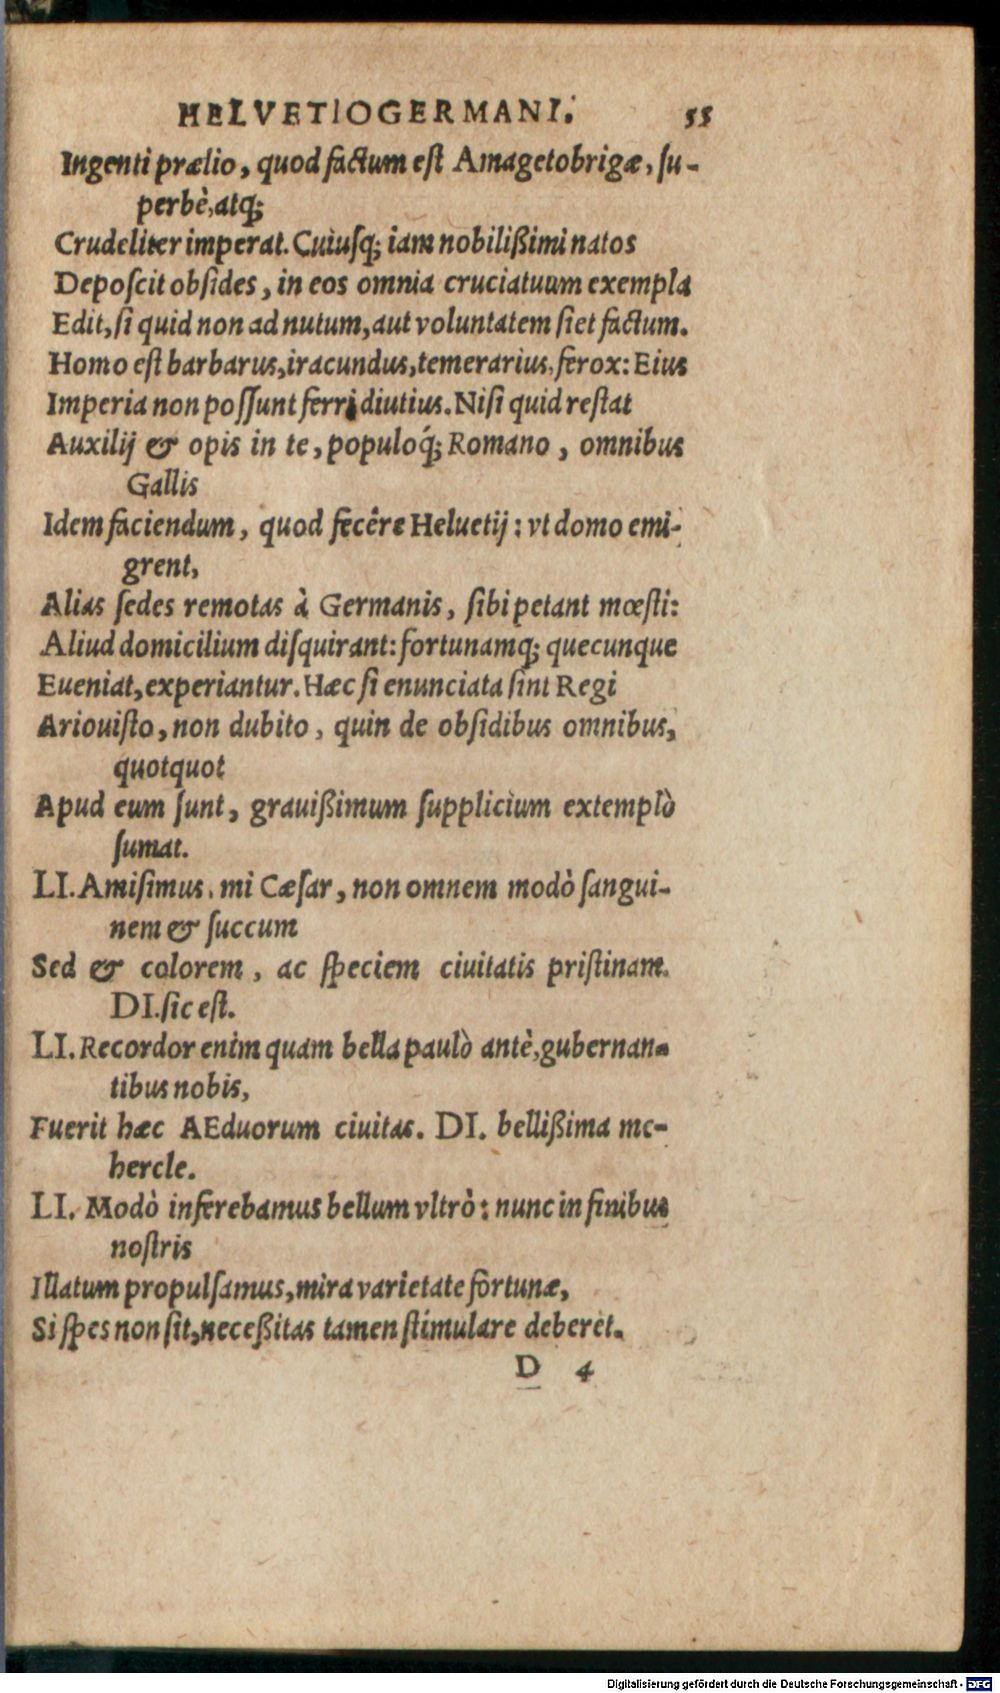 HELVETIOGERMANI. 55
Ingenti prælio, quod factum est Amagetobrigæ, su-
perbè, atq́;
Crudeliter imperat. Cuiusq; iam nobilißimi natos
Deposcit obsides, in eos omnia cruciatuum exempla
Edit, si quid non ad nutum, aut voluntatem siet factum.
Homo est barbarus, iracundus, temerarius, ferox: Eius
Imperia non possunt ferri diutius. Nisi quid restat
Auxilij & opis in te, populoq́; Romano, omnibus
Gallis
Idem faciendum, quod fecêre Heluetij: vt domo emi-
grent,
Alias sedes remotas à Germanis, sibi petant mœsti:
Aliud domicilium disquirant: fortunamq; quecunque
Eueniat, experiantur. Hæc si enunciata sint Regi
Ariouisto, non dubito, quin de obsidibus omnibus,
quotquot
Apud eum sunt, grauißimum supplicium extemplò
sumat.
LI. Amisimus, mi Cæsar, non omnem modò sangui-
nem & succum
Sed & colorem, ac speciem ciuitatis pristinam.
DI. sic est.
LI. Recordor enim quam bella paulò antè, gubernan-
tibus nobis,
Fuerit hæc AEduorum ciuitas. DI. bellißima me-
hercle.
LI. Modò inferebamus bellum vltrò: nunc in finibus
nostris
Illatum propulsamus, mira varietate fortunæ,
Si spes non sit, neceßitas tamen stimulare deberet.
D 4
Digitalisierung gefördert durch die Deutsche Forschungsgemeinschaft - DFG